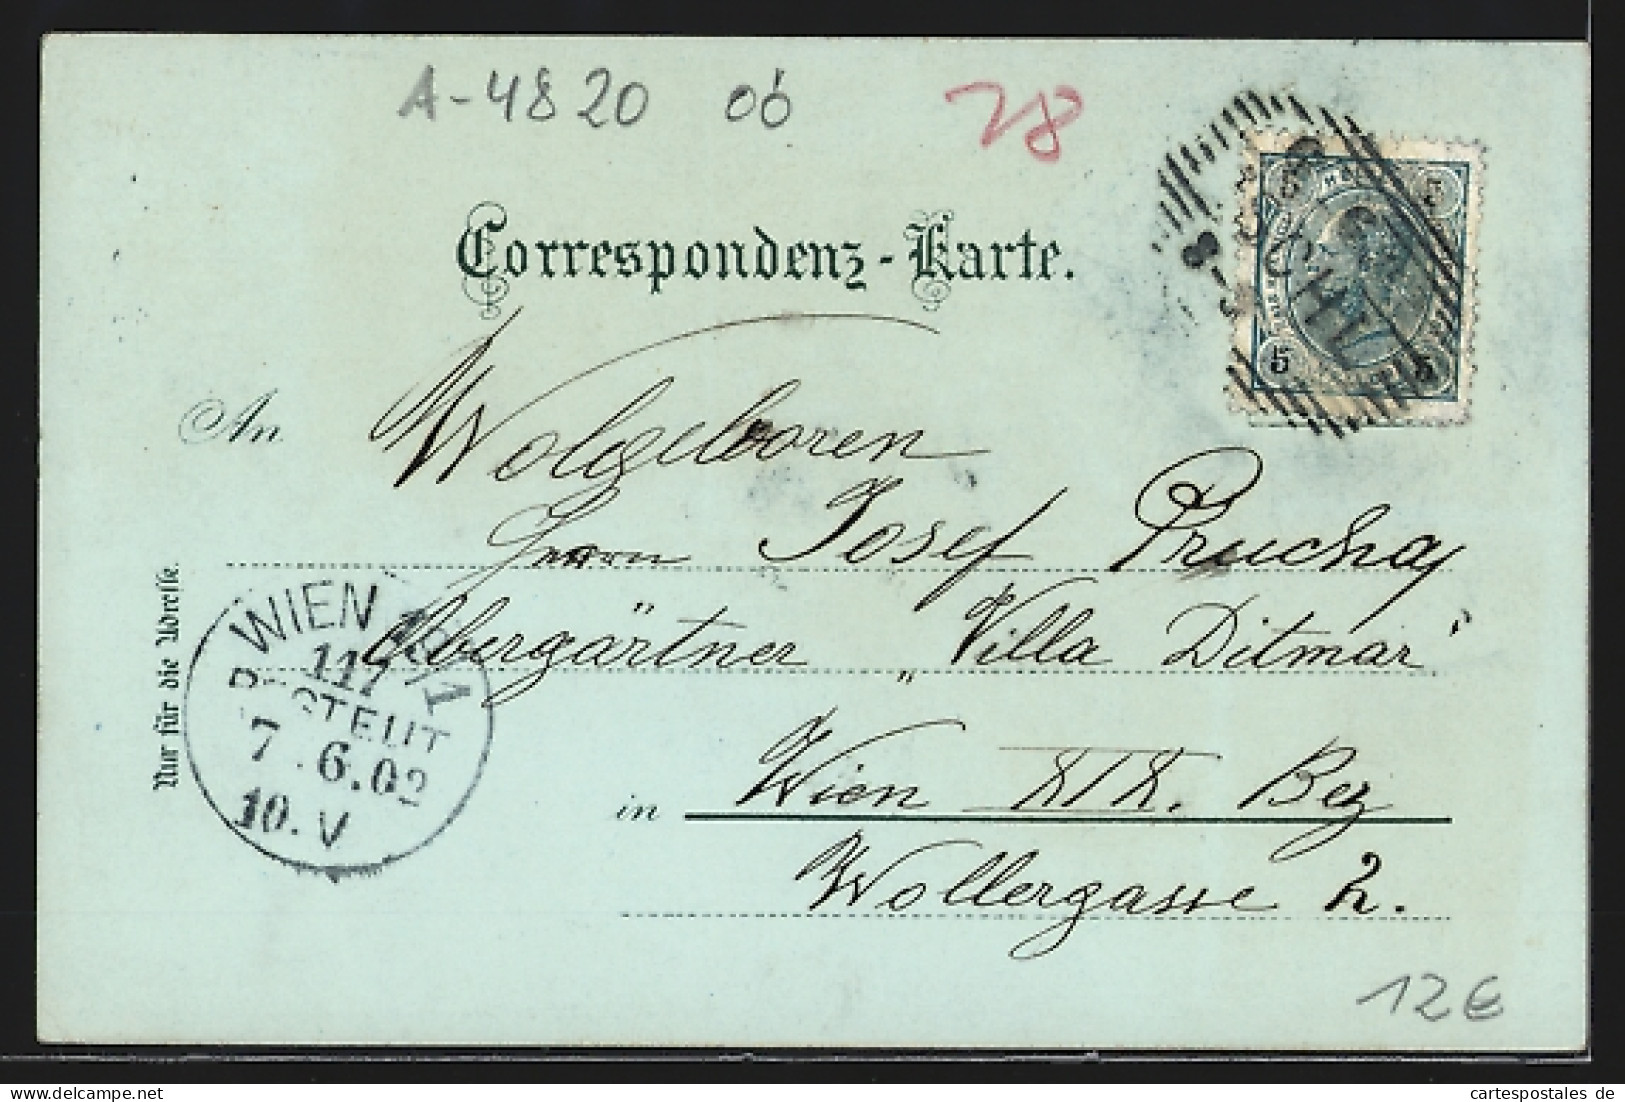 A-4820 06 28
Correspondenz-Karte.
5 5
5 5
An Wolgeboren
Herrn Josef Prucha
Obergärtner "Villa Ditmar"
in Wien XIX. Bez
Wollergasse 2.
Nur für die Adresse.
WIEN 19/1
117
BESTELLT
7.6.02
10.V
ISCHL
12€
delcampe.net
cartespostales de